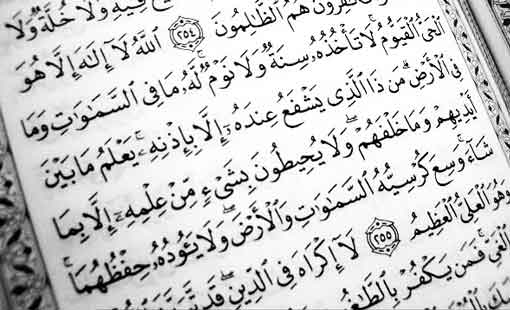 فِيهِ وَلَا خُلَّةٌ وَلَا
هُمُ ٱلظَّـٰلِمُونَ ٢٥٤ ٱللَّهُ لَآ إِلَـٰهَ إِلَّا هُوَ
ٱلْحَىُّ ٱلْقَيُّومُ ۚ لَا تَأْخُذُهُۥ سِنَةٌ وَلَا نَوْمٌ ۚ لَّهُۥ مَا فِى ٱلسَّمَـٰوَٰتِ وَمَا
فِى ٱلْأَرْضِ ۗ مَن ذَا ٱلَّذِى يَشْفَعُ عِندَهُۥٓ إِلَّا بِإِذْنِهِۦ ۚ يَعْلَمُ مَا بَيْنَ
أَيْدِيهِمْ وَمَا خَلْفَهُمْ ۖ وَلَا يُحِيطُونَ بِشَىْءٍ مِّنْ عِلْمِهِۦٓ إِلَّا بِمَا
شَآءَ ۚ وَسِعَ كُرْسِيُّهُ ٱلسَّمَـٰوَٰتِ وَٱلْأَرْضَ ۖ وَلَا يَـُٔودُهُۥ حِفْظُهُمَا ۚ
وَهُوَ ٱلْعَلِىُّ ٱلْعَظِيمُ ٢٥٥ لَآ إِكْرَاهَ فِى ٱلدِّينِ ۖ قَد تَّبَيَّنَ
ٱلْغَىِّ ۚ فَمَن يَكْفُرْ بِٱلطَّـٰغُوتِ